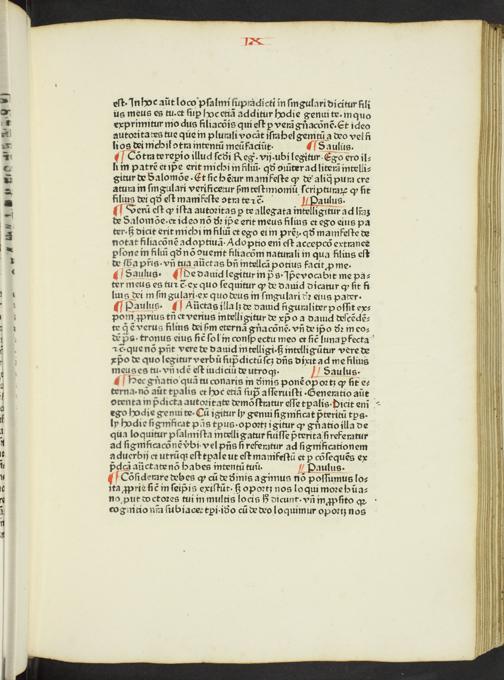 IX
est. In hoc aūt loco psalmi supradicti in singulari dicitur fili
us meus es tu. et sup hoc etiā additur hodie genui te. in quo
exprimitur modus filiacōis qui est p verā gn̄acōnē. Et ideo
autoritates tue que in plurali vocāt israhel genitū a deo vel fi
lios dei nichil ōtra intentū meū faciūt. Saulus.
¶ Cōtra te repio illud scd̄i Reg. vij. ubi legitur. Ego ero il-
li in patrē et ipe erit michi in filiū.
gitur de Salomōe. Et sic hētur manifeste
atura in singulari verificetur sm testimoniū scripturarꝝ ꝙ sit
filius dei qd est manifeste ōtra te ꝛc̄. Paulus.
¶ Verū est ꝙ ista autoritas p te allegata intelligitur ad lr̄az
de Salomōe. et ideo nō dr̄ ipe erit meus filius et ego eius pa
ter. sꝫ dicit erit michi in filiū et ego ei in prez. qd manifeste de
notat filiacōnē adoptiuā. Adoptio enī est accepcō extranee
psone in filiū
Saulus. ¶ De dauid legitur in ps. Ipe vocabit me pa-
ter meus es tu ꝛc̄. ex quo sequitur ꝙ de dauid dicatur ꝙ sit fi
lius dei in singulari. ex quo deus in singulari dr̄ eius pater.
¶ Paulus. ¶ Auctas illa lꝫ de dauid figuraliter possit ex-
poni
te
de ps. tronus eius sic sol in conspectu meo et sic luna pfecta
ꝛc̄. que nō pn̄t vere de dauid intelligi. sꝫ intelligūtur vere de
xpo de quo legitur verbū supdictū scꝫ dn̄s dixit ad me filius
meus es tu. vn̄ idē est iudiciū de utroqꝫ. Saulus.
¶ Hec gn̄atio quā tu conaris in diuis ponē oportꝫ ꝙ sit e-
terna. nō aūt tpalis et hoc etiā sup asseruisti. Generatio aūt
ōtenta in pdicta autoritate demōstratur esse tpalis. Dicit enī
ego hodie genui te. Cū igitur ly genui significat pteritū tps.
ly hodie significat pn̄s tpus. oportꝫ igitur ꝙ gn̄atio illa de
qua loquitur psalmista intelligatur fuisse pterita si referatur
ad significacōnē vbi. vel pn̄s si referatur ad significationem
aduerbij et utrūqꝫ est tpale ut est manifestū et p cōsequēs ex
pdcā auctate nō habes intentū tuū. Paulus.
¶ Cōsiderare debes ꝙ cū de diuinis agimus nō possumus lo-
existūt. sꝫ oportꝫ nos loqui more hūa-
no. put doctores tui in multis locis hꝭ dicunt. vn̄ in pposito
cognitio nr̄a subiacet tpi. ido cū de deo loquimur oportꝫ nos